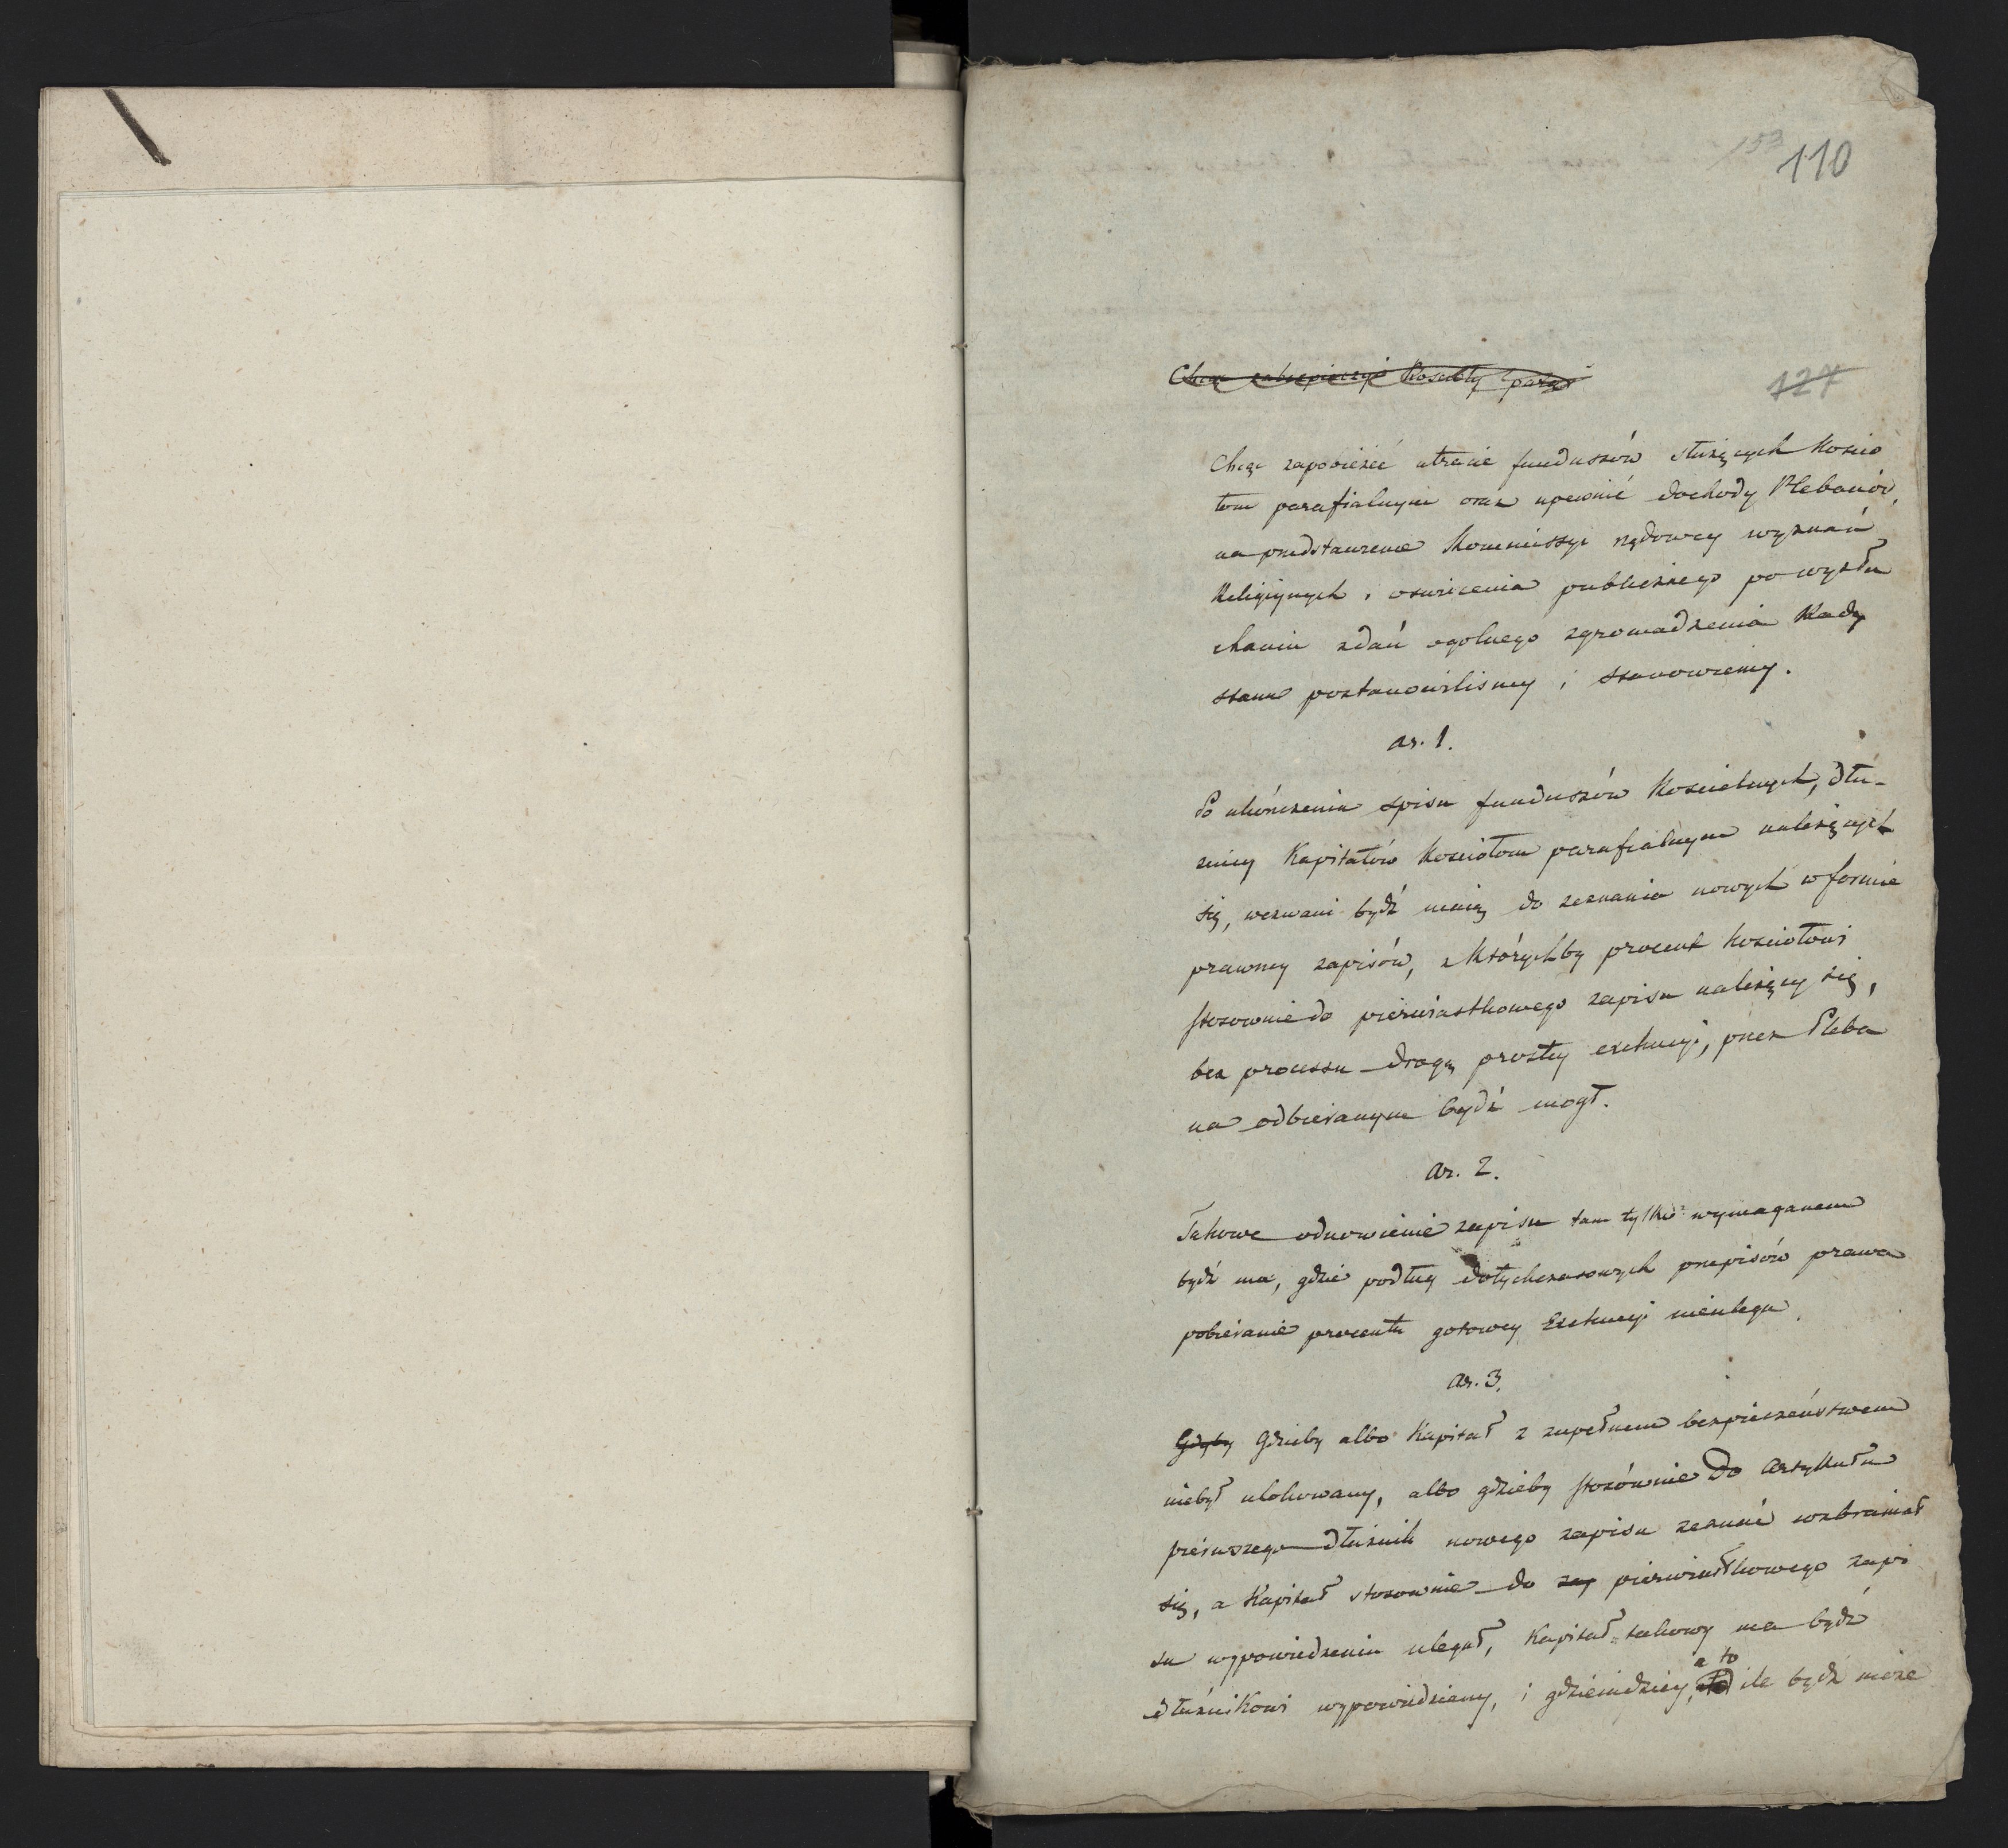 153
110
Chcąc zabezpieczyć Kościoły paraf
127
Chcąc zapobieżeć utracie funduszów służących Kościo
łom parafialnym oraz upewnić dochody Plebanów,
na przedstawienie Kommissyi rządowey wyznań
Religiynych i oswiecenia publicznego po wysłu
chaniu zdań ogolnego zgromadzenia Rady
stanu postanowiliśmy i stanowiemy.
Ar. 1.
Po ukończeniu spisu funduszów Kościelnych, dłu-
żnicy Kapitałów Kościołom parafialnym należących
się, wezwani bydź maią do zeznania nowych w formie
prawney zapisów, z Którychby procent Kościołowi
stosownie do pierwiastkowego zapisu należący się,
bez processu drogą prostey exekucyi, przez Pleba
na odbieranym bydź mogł.
Ar. 2.
Takowe odnowienie zapisu tam tylko wymaganem
bydź ma, gdzie podług dotychczasowych przepisów prawa
pobieranie procentu gotowey Exekucyi nieulega.
Ar. 3.
Gdyby Gdzieby albo Kapitał z zupełnem bezpieczeństwem
niebył ulokowany, albo gdzieby stosównie do Artykułu
pierwszego dłużnik nowego zapisu zeznać wzbraniał
się, a Kapitał stosownie do zap pierwiastkowego zapi
su wypowiedzeniu ulegał, Kapitał takowy ma bydź
a to
dłużnikowi wypowiedziany, i gdzieindziey, ile bydź może